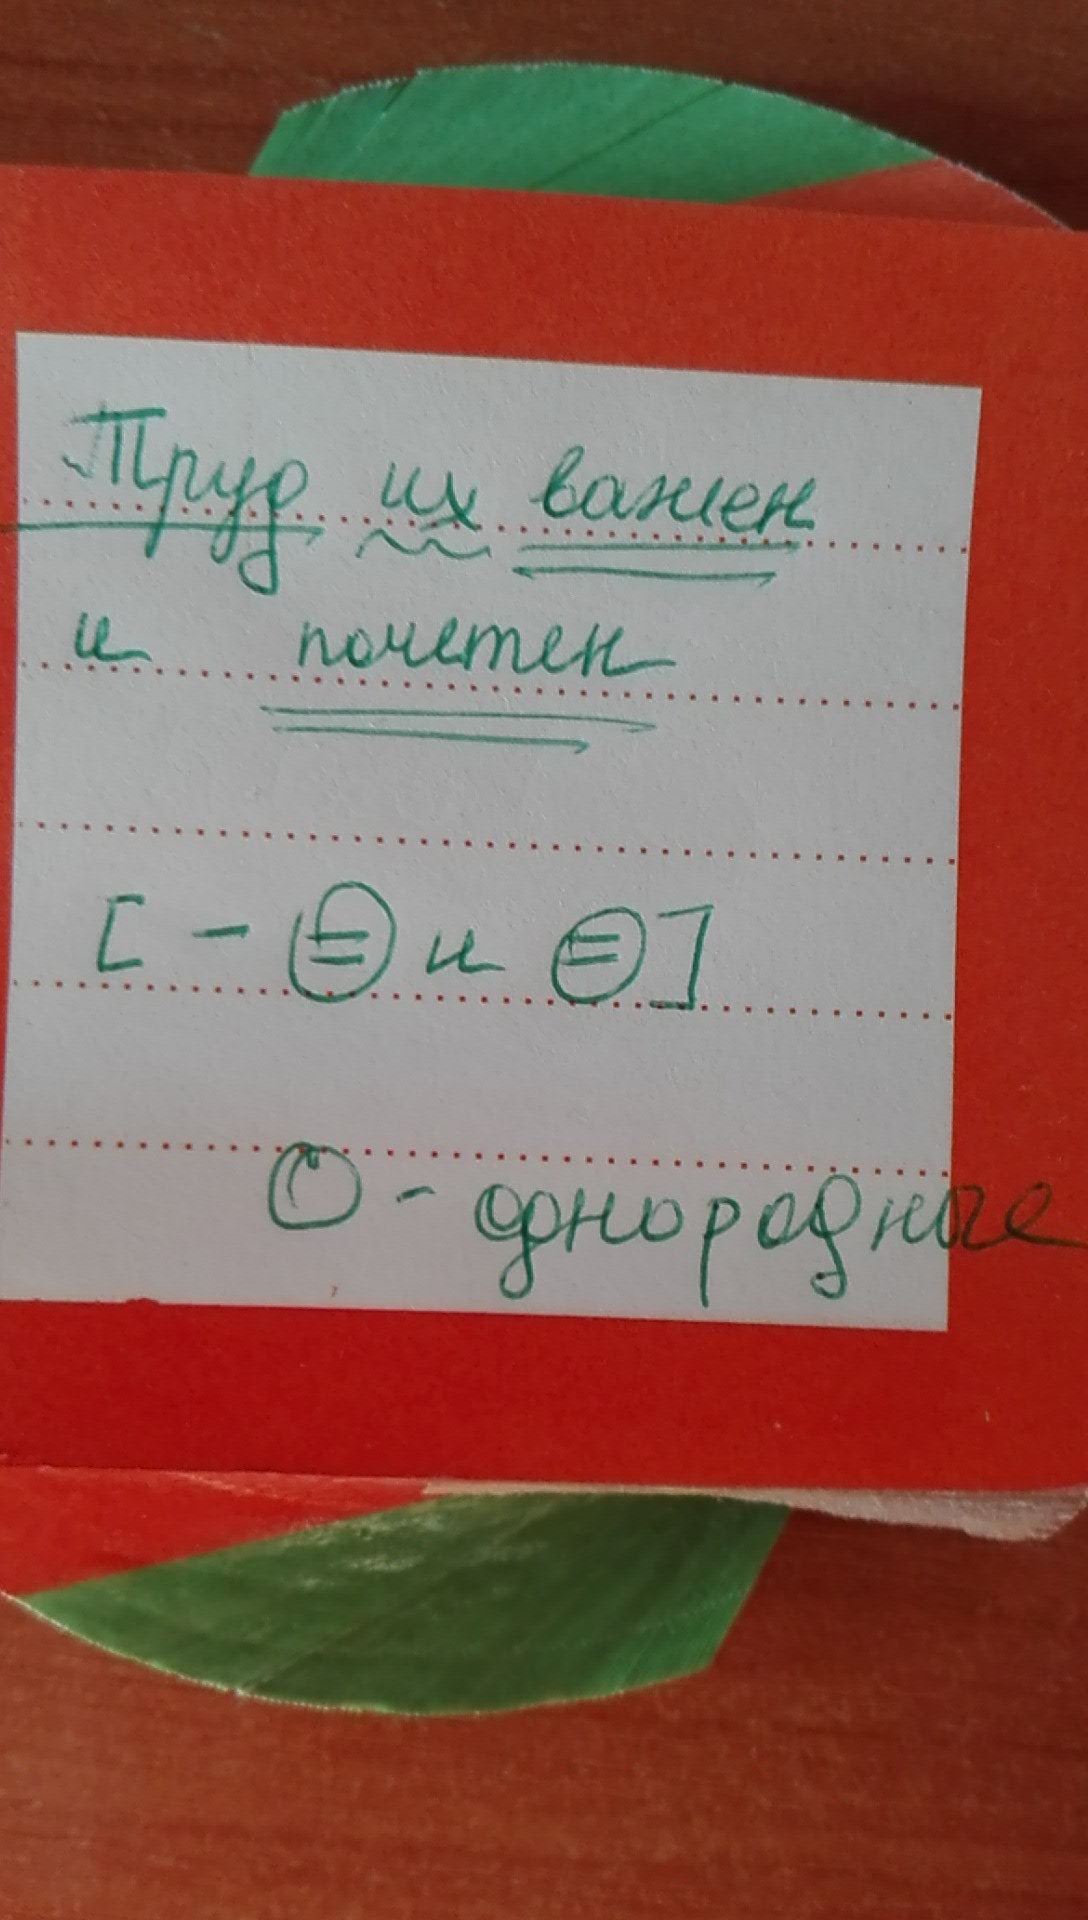 Труд их важен
и почетен
[ - = и = ]
O - однородные